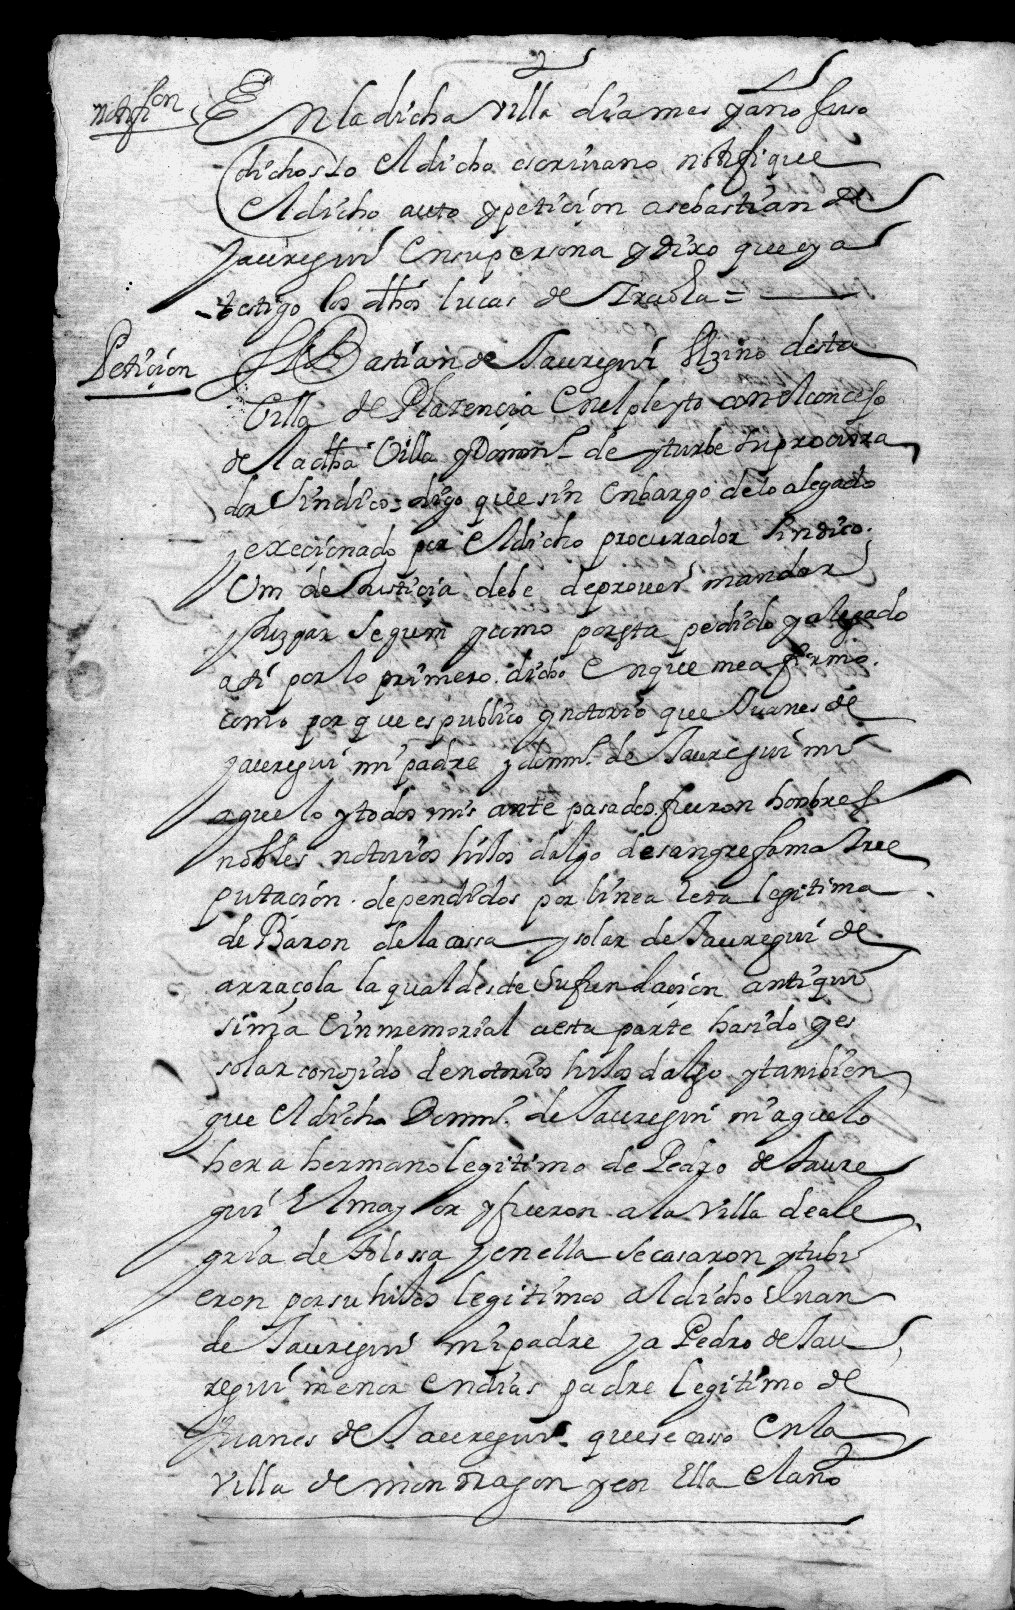 notifion
En la dicha villa dia mes y año suso
dichos Yo el dicho escrivano notifique
el dicho auto y peticion a sebastian de
Jauregui en su persona y dixo que oya
testigo los dhos lucas de =
Peticion
Sebastian de Jauregui vezino desta
Villa de Plazencia en el pleyto con el concejo
de la dha Villa y Domin de yturbe su procura
dor sindico digo que sin enbargo de lo alegado
y execionado por el dicho procurador sindico
Vm de Justicia debe de prover mandar
y Juzgar segun y como por sta pedido y alegado
asi por lo primero dicho en que me afirmo
como por que es publico y notorio que Juanes de
Jauregui mi padre y domin de Jauregui mi
aguelo y todos mis ante pasados fueron honbres
nobles notorios hijos dalgo de sangre fama y rre
putacion dependidos por linea reta legitima
de Baron de la cassa y solar de Jauregui de
arraçola la qual desde su fundacion antiqui
sima e inmemorial a esta parte ha sido y es
solar conozido de notorios hijos dalgo y tanbien
que el dicho Domin de Jauregui mi aguelo
hera hermano legitimo de Pedro de Jaure
gui El mayor y fueron a la villa de ale
gria de tolossa y en ella se casaron y tubi
eron por su hijos legitimos al dicho Juan
de Jauregui mi padre y a Pedro de Jau
regui menor en dias padre legitimo de
Juanes de Jauregui que se casso en la
villa de mondragon y en Ella el año